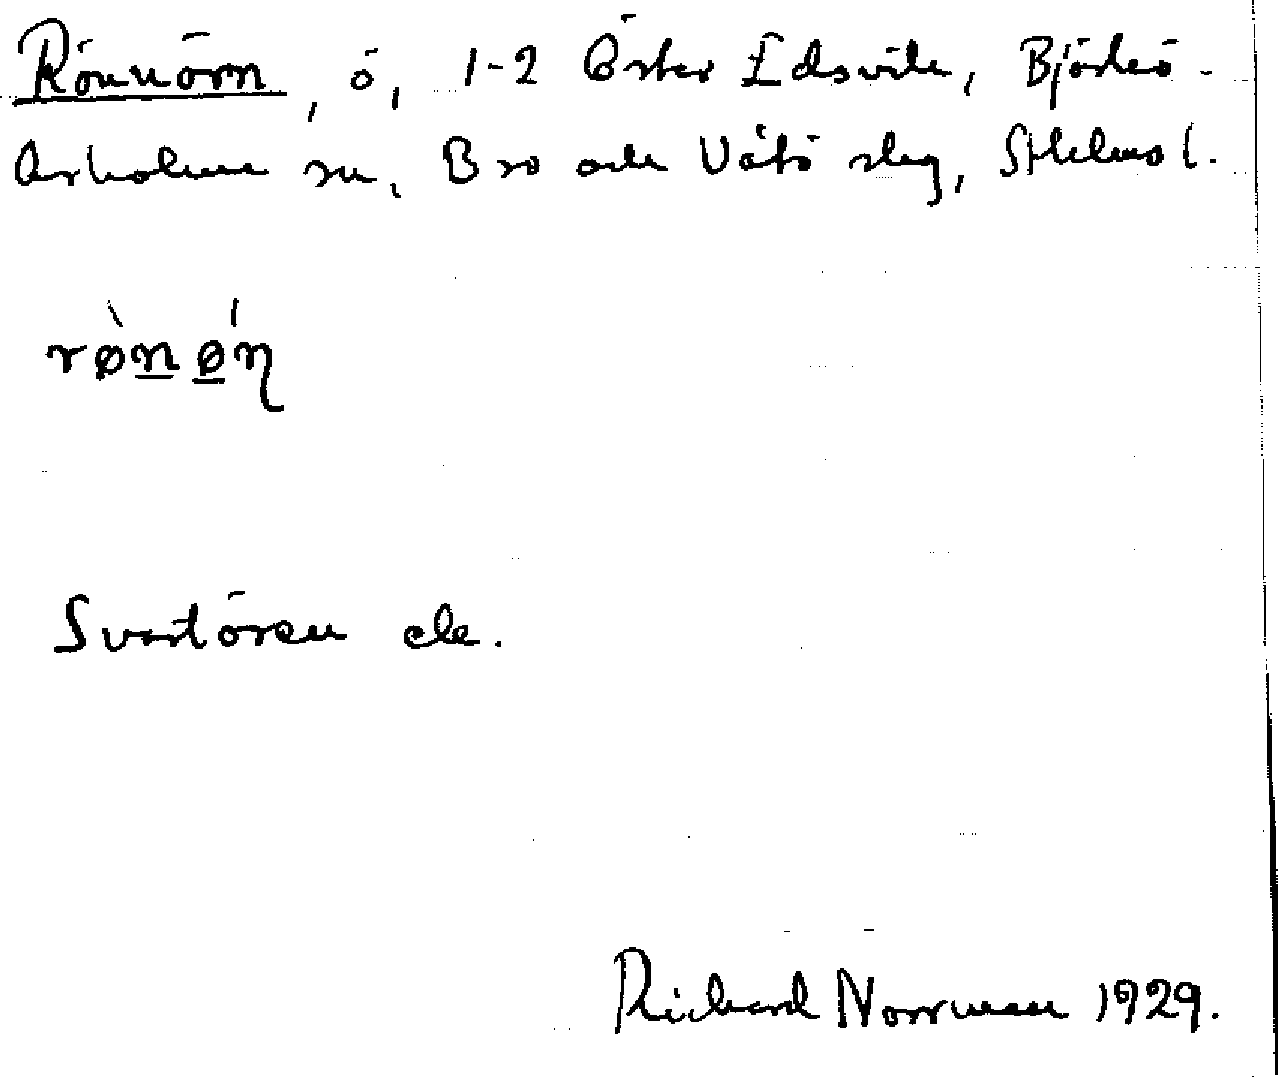 Rönnörn, ö, 1-2 Öster Edsvik, Björkö-
Arholma sn, Bro och Vätö slg, Sthlms l.
rø̀nǿη
Svartören etc.
Richard Norrman 1929.